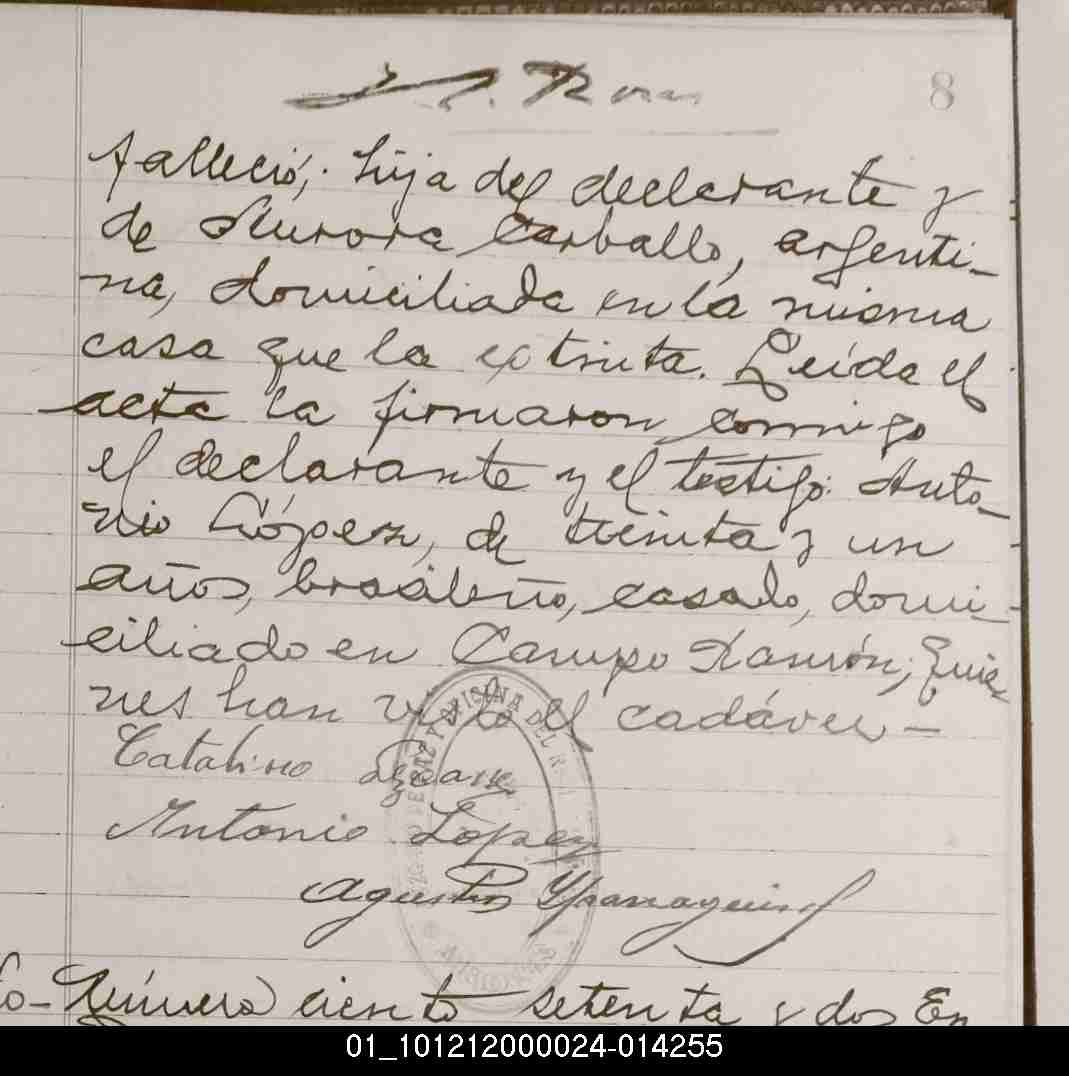 8
falleció; hija del declarante y
de Aurora Carballo, argenti-
na, domiciliada en la misma
casa que la extinta. Leída el
acta la firmaron conmigo
el declarante y el testigo: Anto-
nio López, de treinta y un
años, brasileño, casado, domi-
ciliado en Campo Ramón; quie-
nes han visto el cadáver —
Catalino
Antonio Lopez
Agustin
Número ciento setenta y dos En
01_101212000024-014255